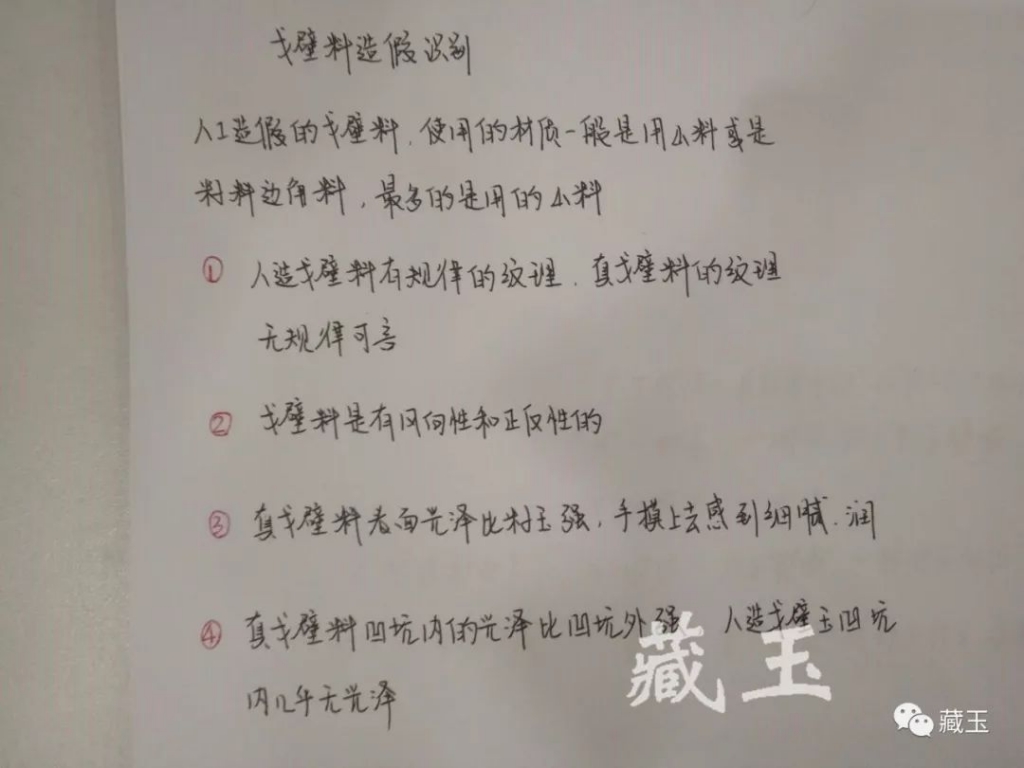 戈壁料造假识别
人工造假的戈壁料.使用的材质一般是用山料或是
籽料边角料,最多的是用的山料
① 人造戈壁料有规律的纹理.真戈壁料的纹理
无规律可言
② 戈壁料是有风向性和正反性的
③ 真戈壁料表面光泽比籽玉强.手摸上去感到细腻.润
④ 真戈壁料凹坑内的光泽比凹坑外强 人造戈壁玉凹坑
内几乎无光泽
藏玉
藏玉